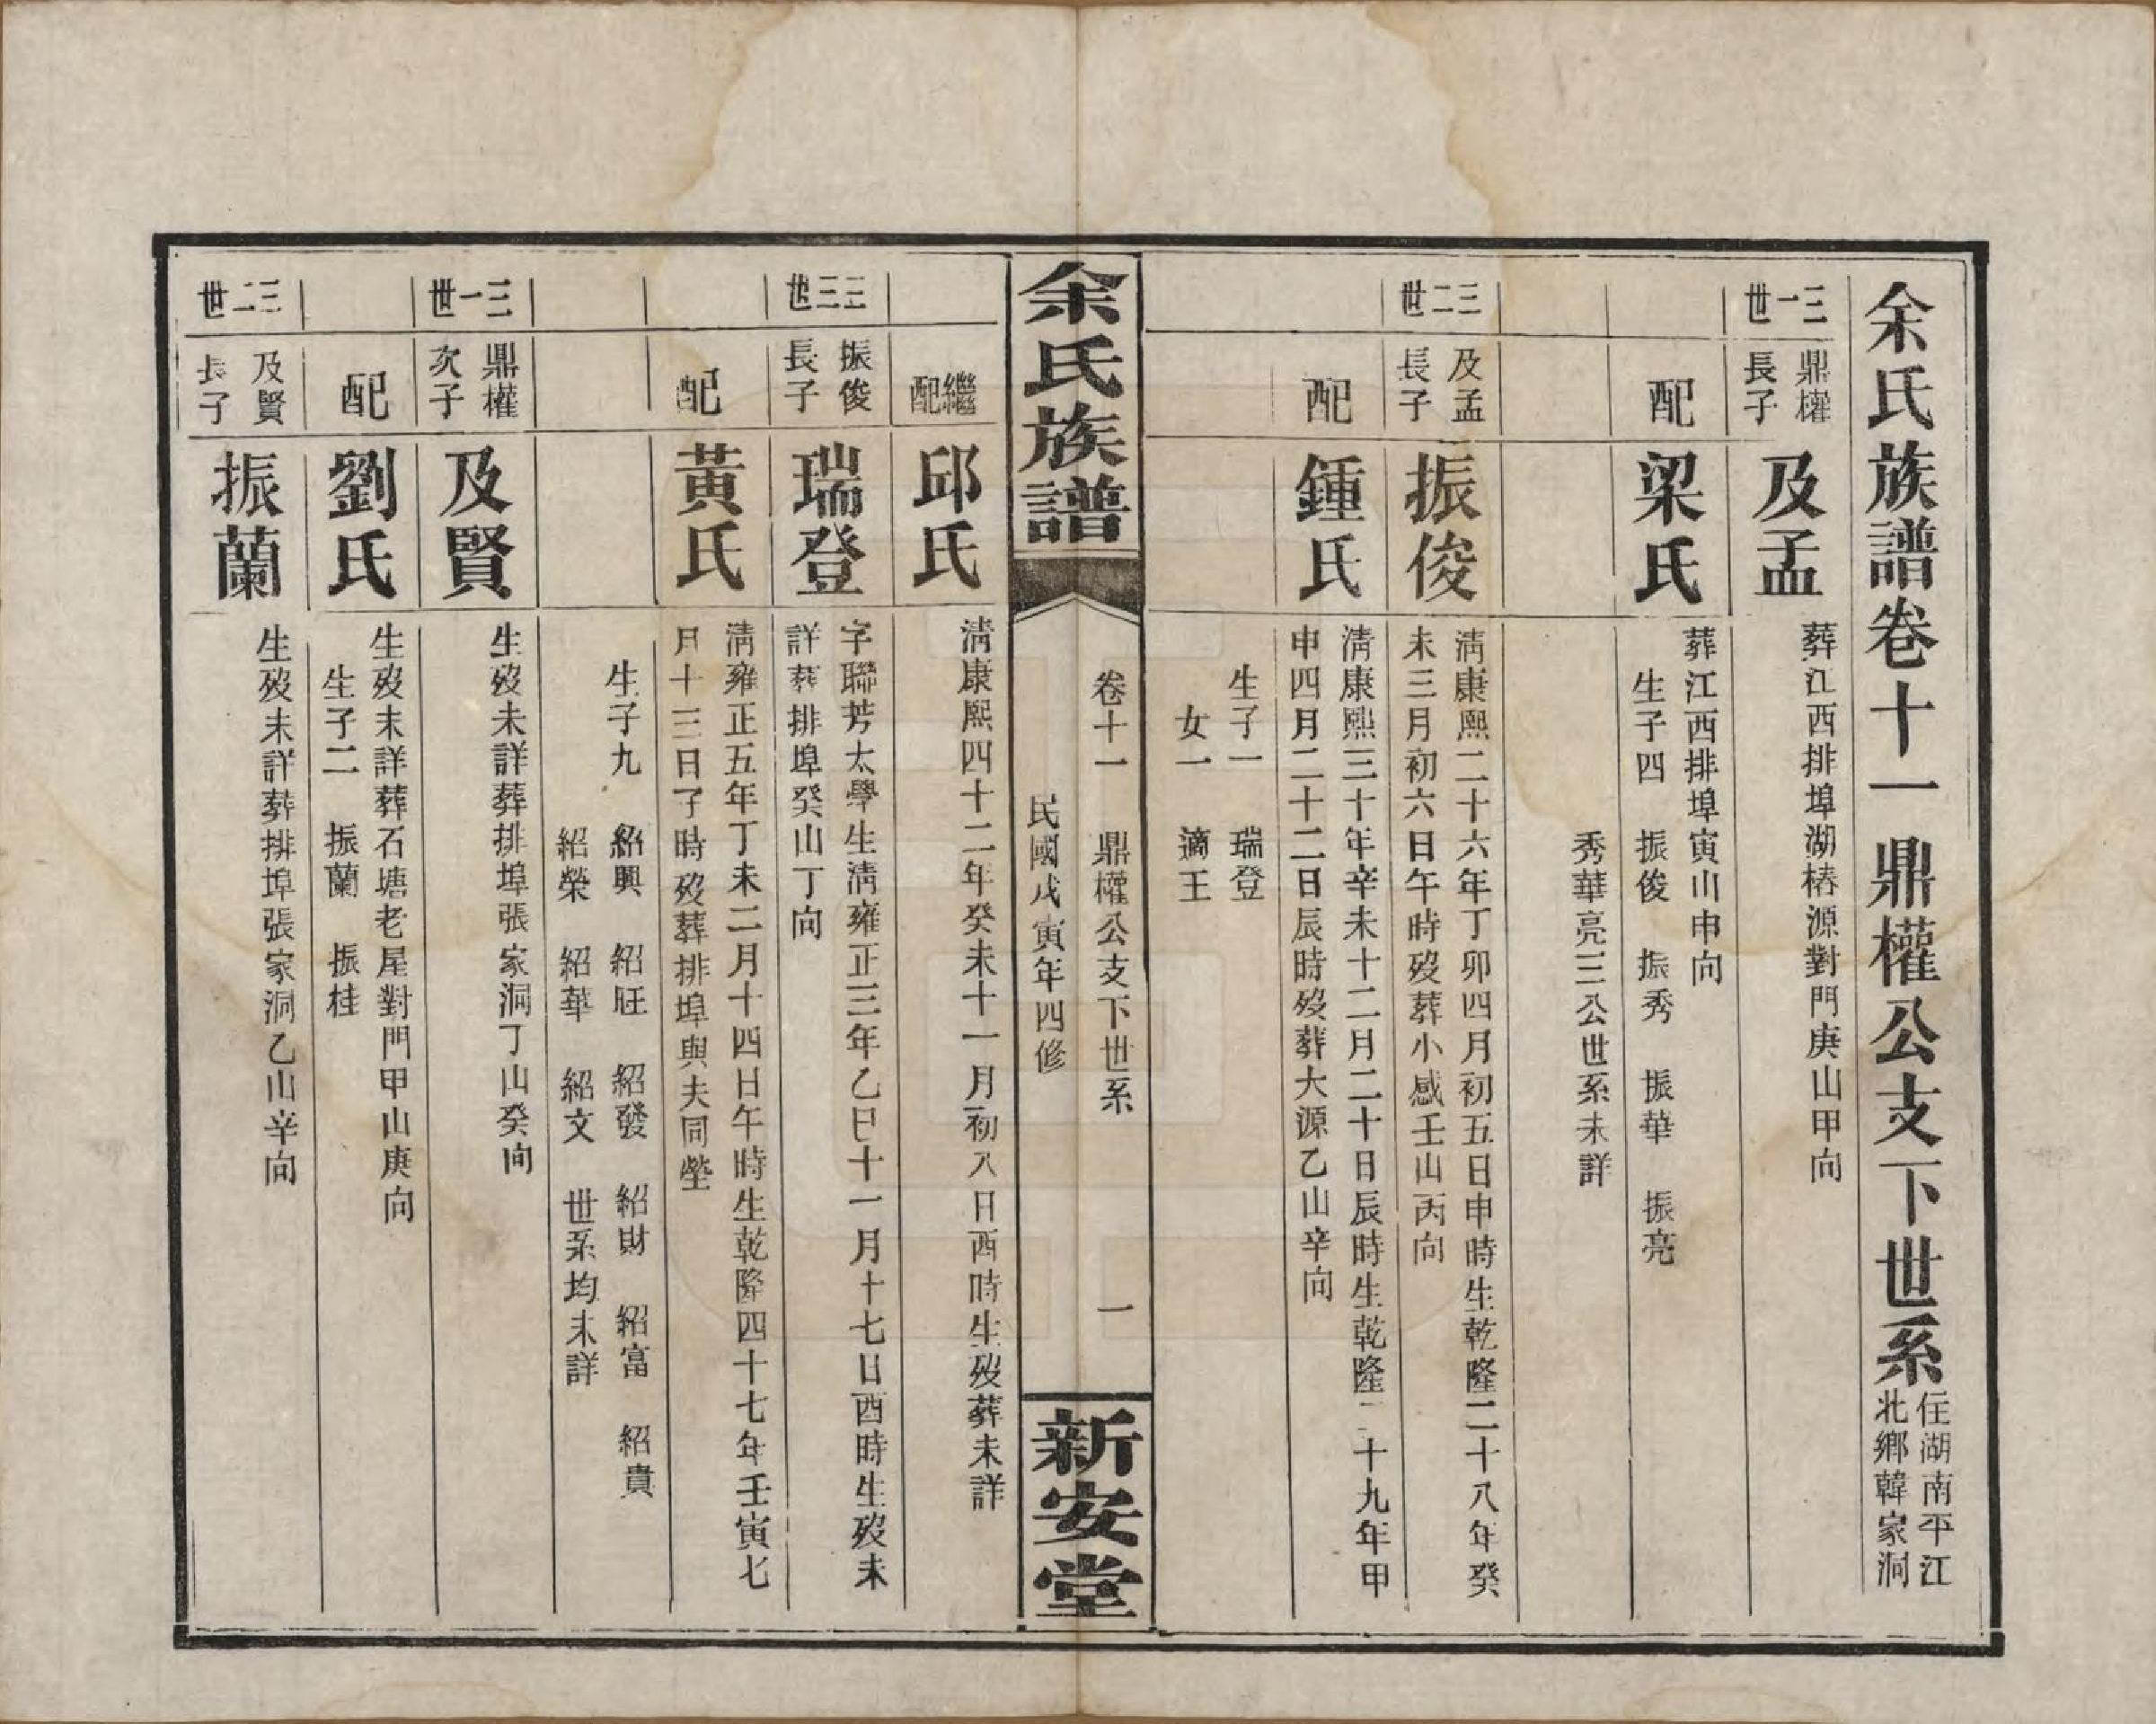 余氏族譜卷十一鼎權公支下世系
住湖南平江
北鄉韓家洞
三一世
鼎權
長子
及孟
葬江西排埠湖樁源對門庚山甲向
配
梁氏
葬江西排埠寅山申向
生子四 振俊 振秀 振華 振亮
秀華亮三公世系未詳
三二世
及孟
長子
振俊
淸康熙二十六年丁卯四月初五日申時生乾隆二十八年癸
未三月初六日午時歿葬小感壬山丙向
配
鍾氏
淸康熙三十年辛未十二月二十日辰時生乾隆二十九年甲
申四月二十二日辰時歿葬大源乙山辛向
生子一 瑞登
女一 適王
余氏族譜
卷十一 鼎權公支下世系 一
民國戊寅年四修
新安堂
繼配
邱氏
淸康熙四十二年癸未十一月初八日酉時生歿葬未詳
三三世
振俊
長子
瑞登
字聯芳太學生淸雍正三年乙巳十一月十七日酉時生歿未
詳葬排埠癸山丁向
配
黃氏
淸雍正五年丁未二月十四日午時生乾隆四十七年壬寅七
月十三日子時歿葬排埠與夫同塋
生子九 紹興 紹旺 紹發 紹財 紹富 紹貴
紹榮 紹華 紹文 世系均未詳
三一世
鼎權
次子
及賢
生歿未詳葬排埠張家洞丁山癸向
配
劉氏
生歿未詳葬石塘老屋對門甲山庚向
生子二 振蘭 振桂
三二世
及賢
長子
振蘭
生歿未詳葬排埠張家洞乙山辛向